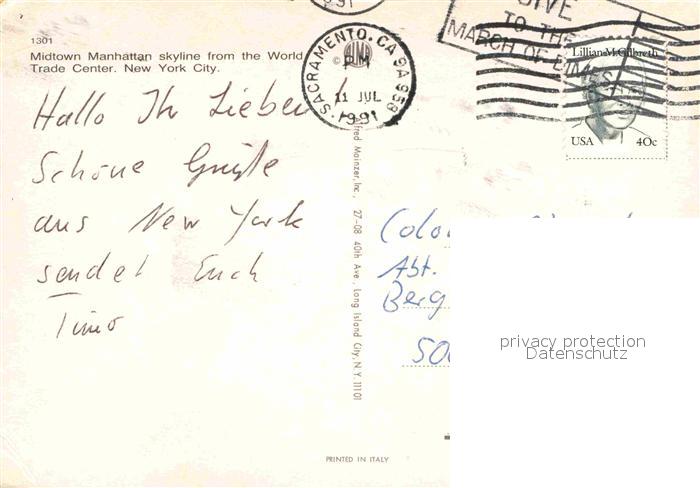 1301
Midtown Manhattan skyline from the World
Trade Center. New York City.
SACRAMENTO. CA 958
PM
11 JUL
1991
GIVE
TO THE
MARCH OF DIMES
Lillian M. Gilbreth
USA 40c
Hallo Ihr Lieben!
Schöne Grüße
aus New York
sendet Euch
Timo
Alfred Mainzer, Inc., 27-08 40th Ave., Long Island City, N.Y. 11101
Abt.
Berg
privacy protection
Datenschutz
PRINTED IN ITALY